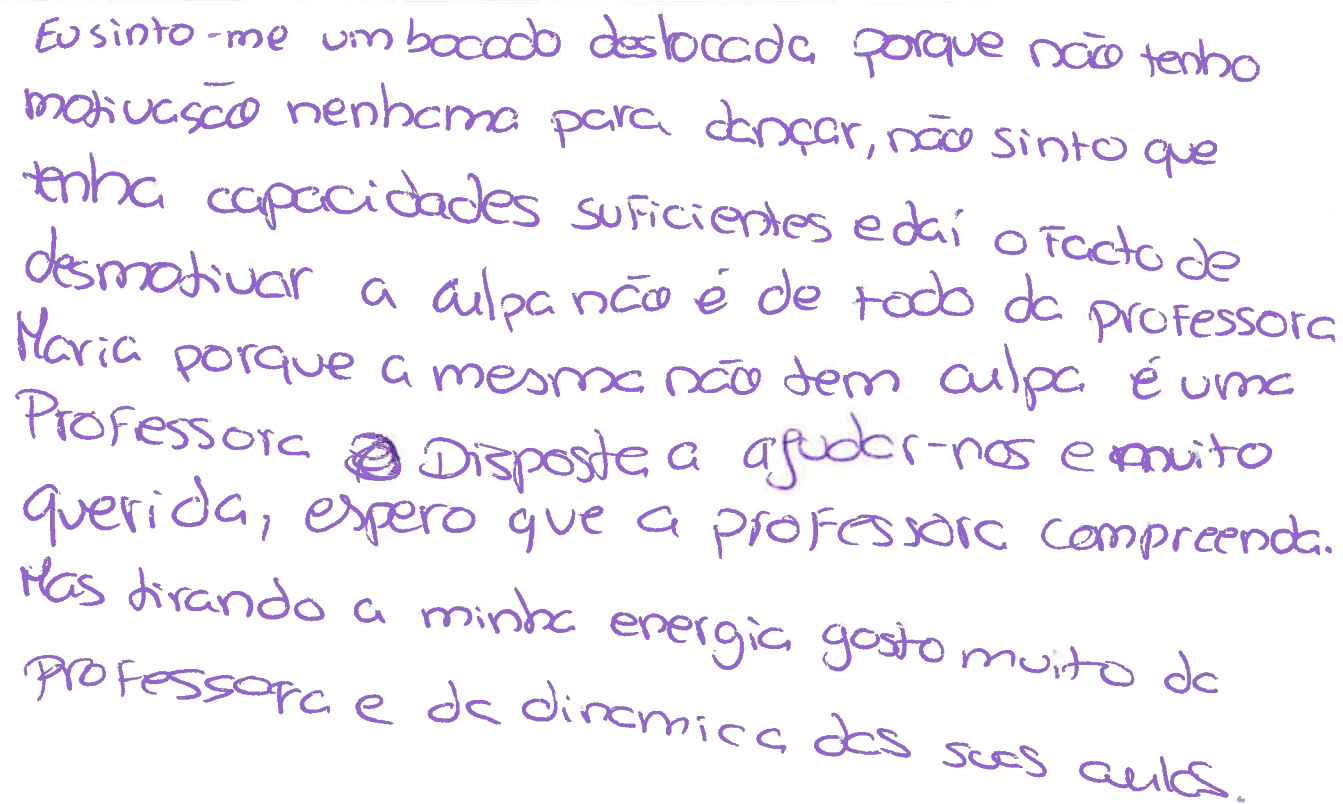 Eu sinto-me um bocado deslocada porque não tenho
motivasção nenhama para dançar, não sinto que
tenha capacidades suficientes e daí o facto de
desmotivar a culpa não é de todo da professora
Maria porque a mesma não tem culpa é uma
Professora Disposta a ajudar-nos e muito
querida, espero que a professora compreenda.
Mas tirando a minha energia gosto muito da
professora e da dinamica das suas aulas.